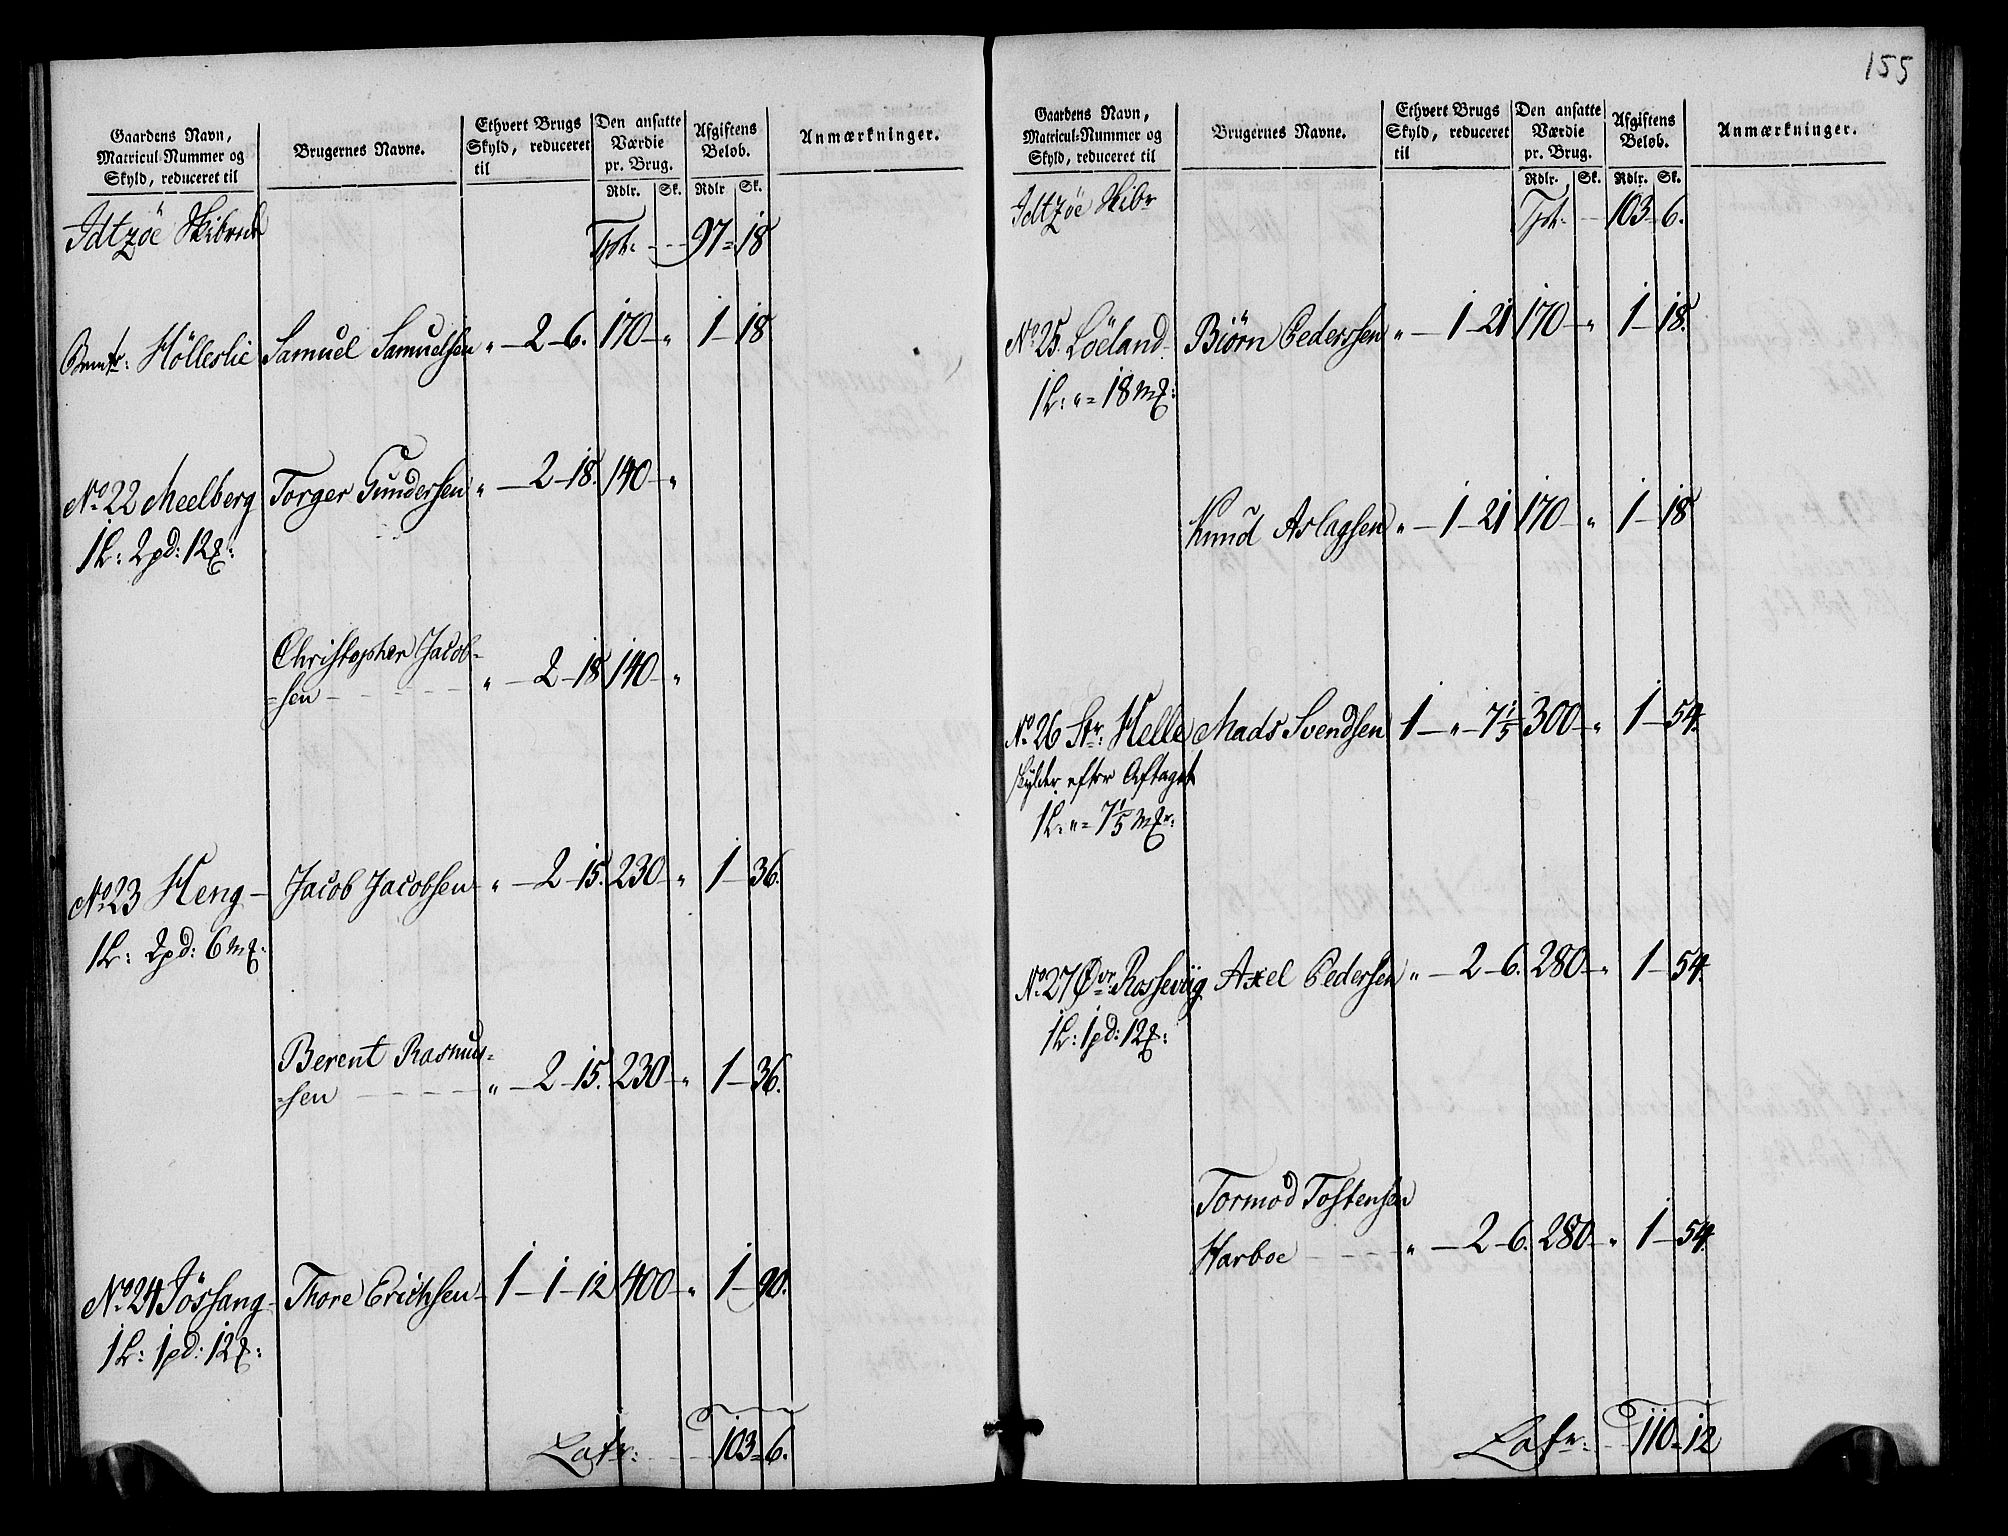 155
Gaardens Navn,
Matricul-Nummer og
Skyld, reduceret til
Brugernes Navne.
Ethvert Brugs
Skyld, reduceret
til
Den ansatte
Værdie
pr. Brug.
Rdlr. Sk.
Afgiftens
Beløb.
Rdlr Sk.
Anmærkninger.
Idtzöe Skibred Tpt: 97 = 18
Hölleslie Samuel Samuelsen „ – 2 – 6. 170 – „ 1 – 18
No 22 Meelberg Torger Gundersen „ – 2 – 18. 140 – „
1L: 2pd: 12
Christopher Jacob-
=sen „ – 2 – 18 140 – „
No 23 Heng – Jacob Jacobsen „ – 2 – 15. 230 – „ 1 – 36.
1L: 2pd: 6
Berent Rasmus=
=sen „ – 2 – 15. 230 – „ 1 – 36.
No 24 Jössang – Thore Erichsen – 1 – 1 – 12 400 – „ 1 – 90.
1L: 1pd: 12
Latr: 103 = 6.
Gaardens Navn,
Matricul-Nummer og
Skyld, reduceret til
Brugernes Navne.
Ethvert Brugs
Skyld, reduceret
til
Den ansatte
Værdie
pr. Brug.
Rdlr. Sk.
Afgiftens
Beløb.
Rdlr. Sk.
Anmærkninger.
Idtzöe Skibr Tpt: 103 – 6.
No 25. Löeland – Biörn Pederssen „ – 1 – 21 170 – „ 1 – 18.
1L: „ = 18
Knud Aslagsen „ – 1 – 21 170 – „ 1 – 18
No 26 Str: Helle Mads Svendsen 1 – „ – 7 1/5 300 – „ 1 – 54.
skylder efter Aftaget
1L: „ = 7 1/5
No 27 Øvr: Rosseviig Axel Pedersen „ – 2 – 6. 280 – „ 1 – 54.
1L: 1pd: 12
Tormod Tostensen
Harboe „ – 2 – 6. 280 – „ 1 – 54.
Latr: 110 = 12